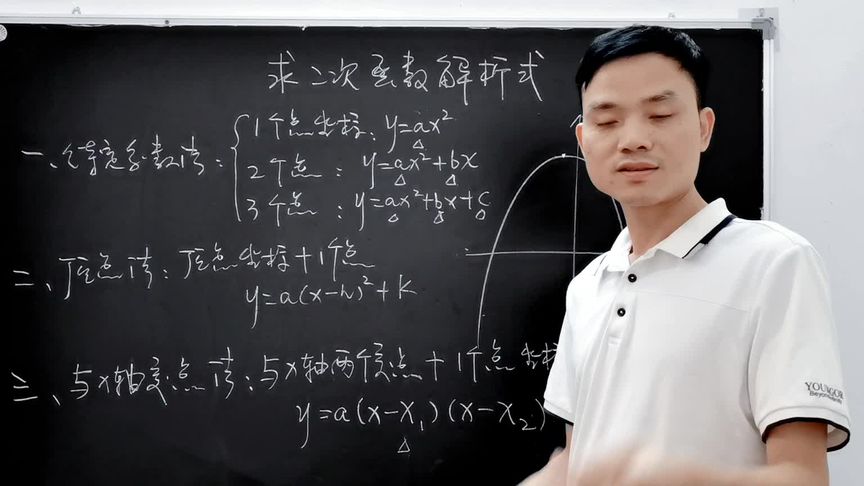 求二次函数解析式
一、待定系数法:
1个点坐标:y=ax²
2个点:y=ax²+bx
3个点:y=ax²+bx+c
二、顶点法:顶点坐标+1个点
y=a(x-h)²+k
三、与x轴交点法:与x轴两个交点+1个点坐标
y=a(x-x₁)(x-x₂)
YOUNGOR